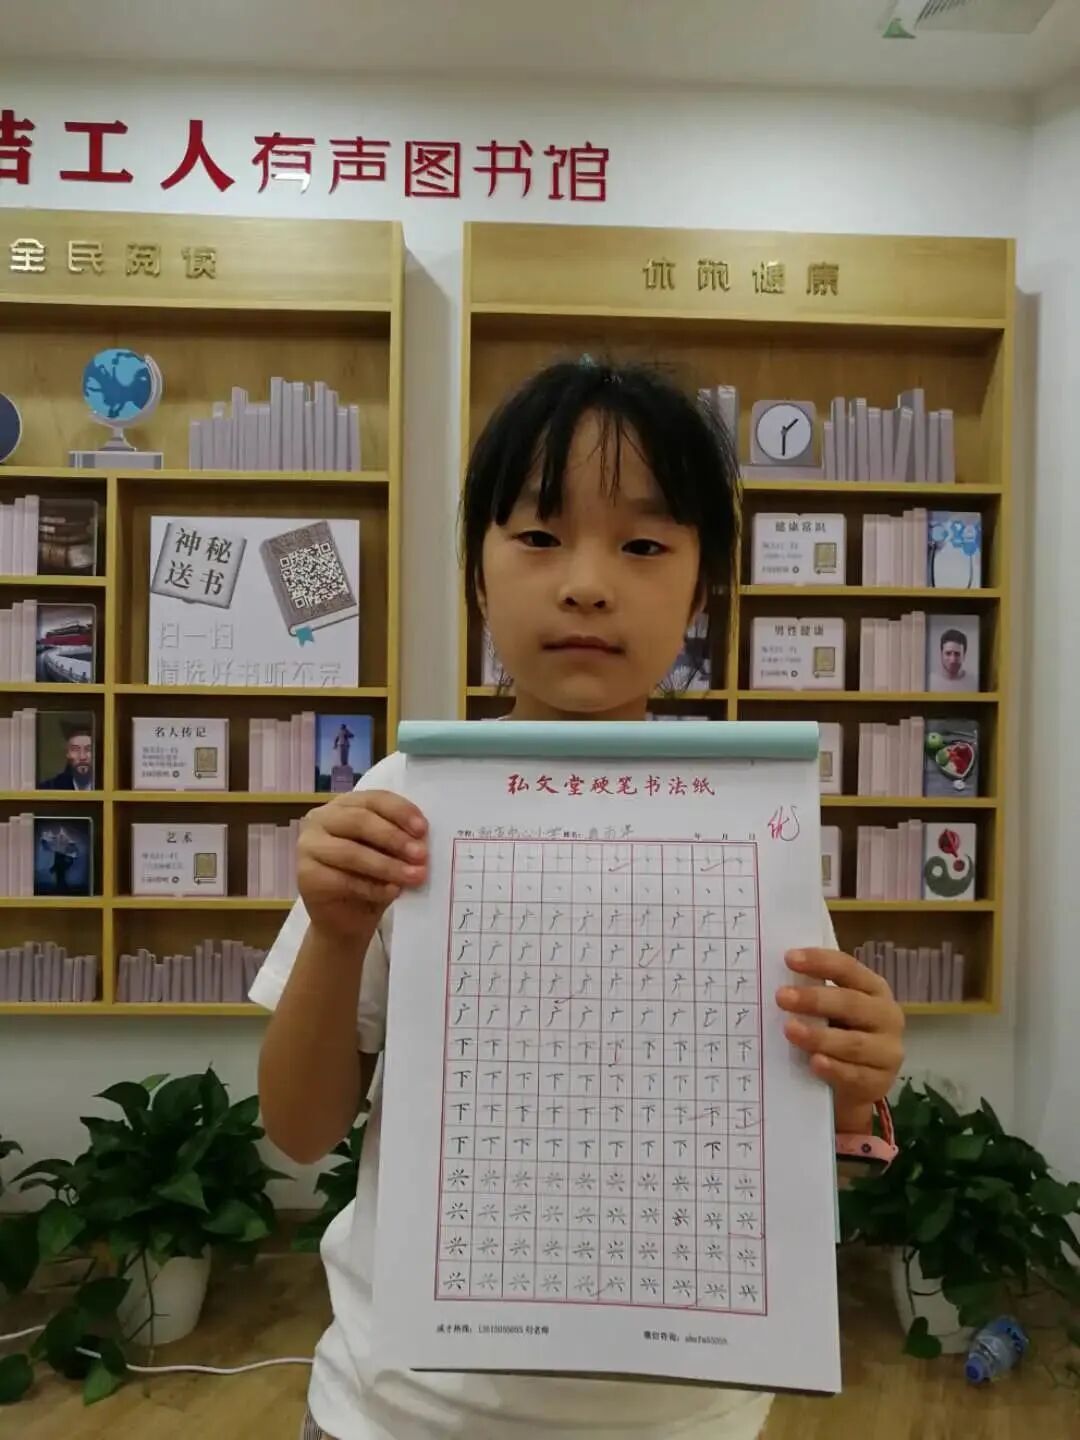 工人有声图书馆
全民阅读
健康
神秘
送书
扫一扫
精选好书听不完
健康常识
男性健康
名人传记
艺术
弘文堂硬笔书法纸
优
学校: 中心小学 姓名: 年 月 日
丶 丶 丶 丶 丶 丶 丶 丶 丶 丶
丶 丶 丶 丶 丶 丶 丶 丶 丶 丶
广 广 广 广 广 广 广 广 广 广
广 广 广 广 广 广 广 广 广 广
广 广 广 广 广 广 广 广 广 广
广 广 广 广 广 广 广 广 广 广
下 下 下 下 下 下 下 下 下 下
下 下 下 下 下 下 下 下 下 下
下 下 下 下 下 下 下 下 下 下
下 下 下 下 下 下 下 下 下 下
兴 兴 兴 兴 兴 兴 兴 兴 兴 兴
兴 兴 兴 兴 兴 兴 兴 兴 兴 兴
兴 兴 兴 兴 兴 兴 兴 兴 兴 兴
兴 兴 兴 兴 兴 兴 兴 兴 兴 兴